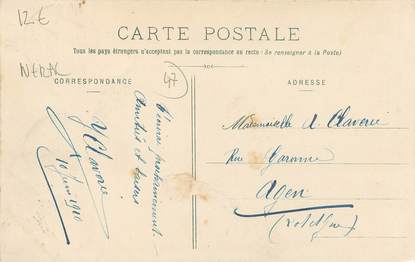 12 €
NERAC
47
CARTE POSTALE
Tous les pays étrangers n'acceptent pas la correspondance au recto (Se renseigner à la Poste)
CORRESPONDANCE
ADRESSE
prochainement
Amitiés et baisers
Y Claverie
10 Juin 1910
Mademoiselle A. Claverie
Rue Garonne
Agen
(Lot et Gar)